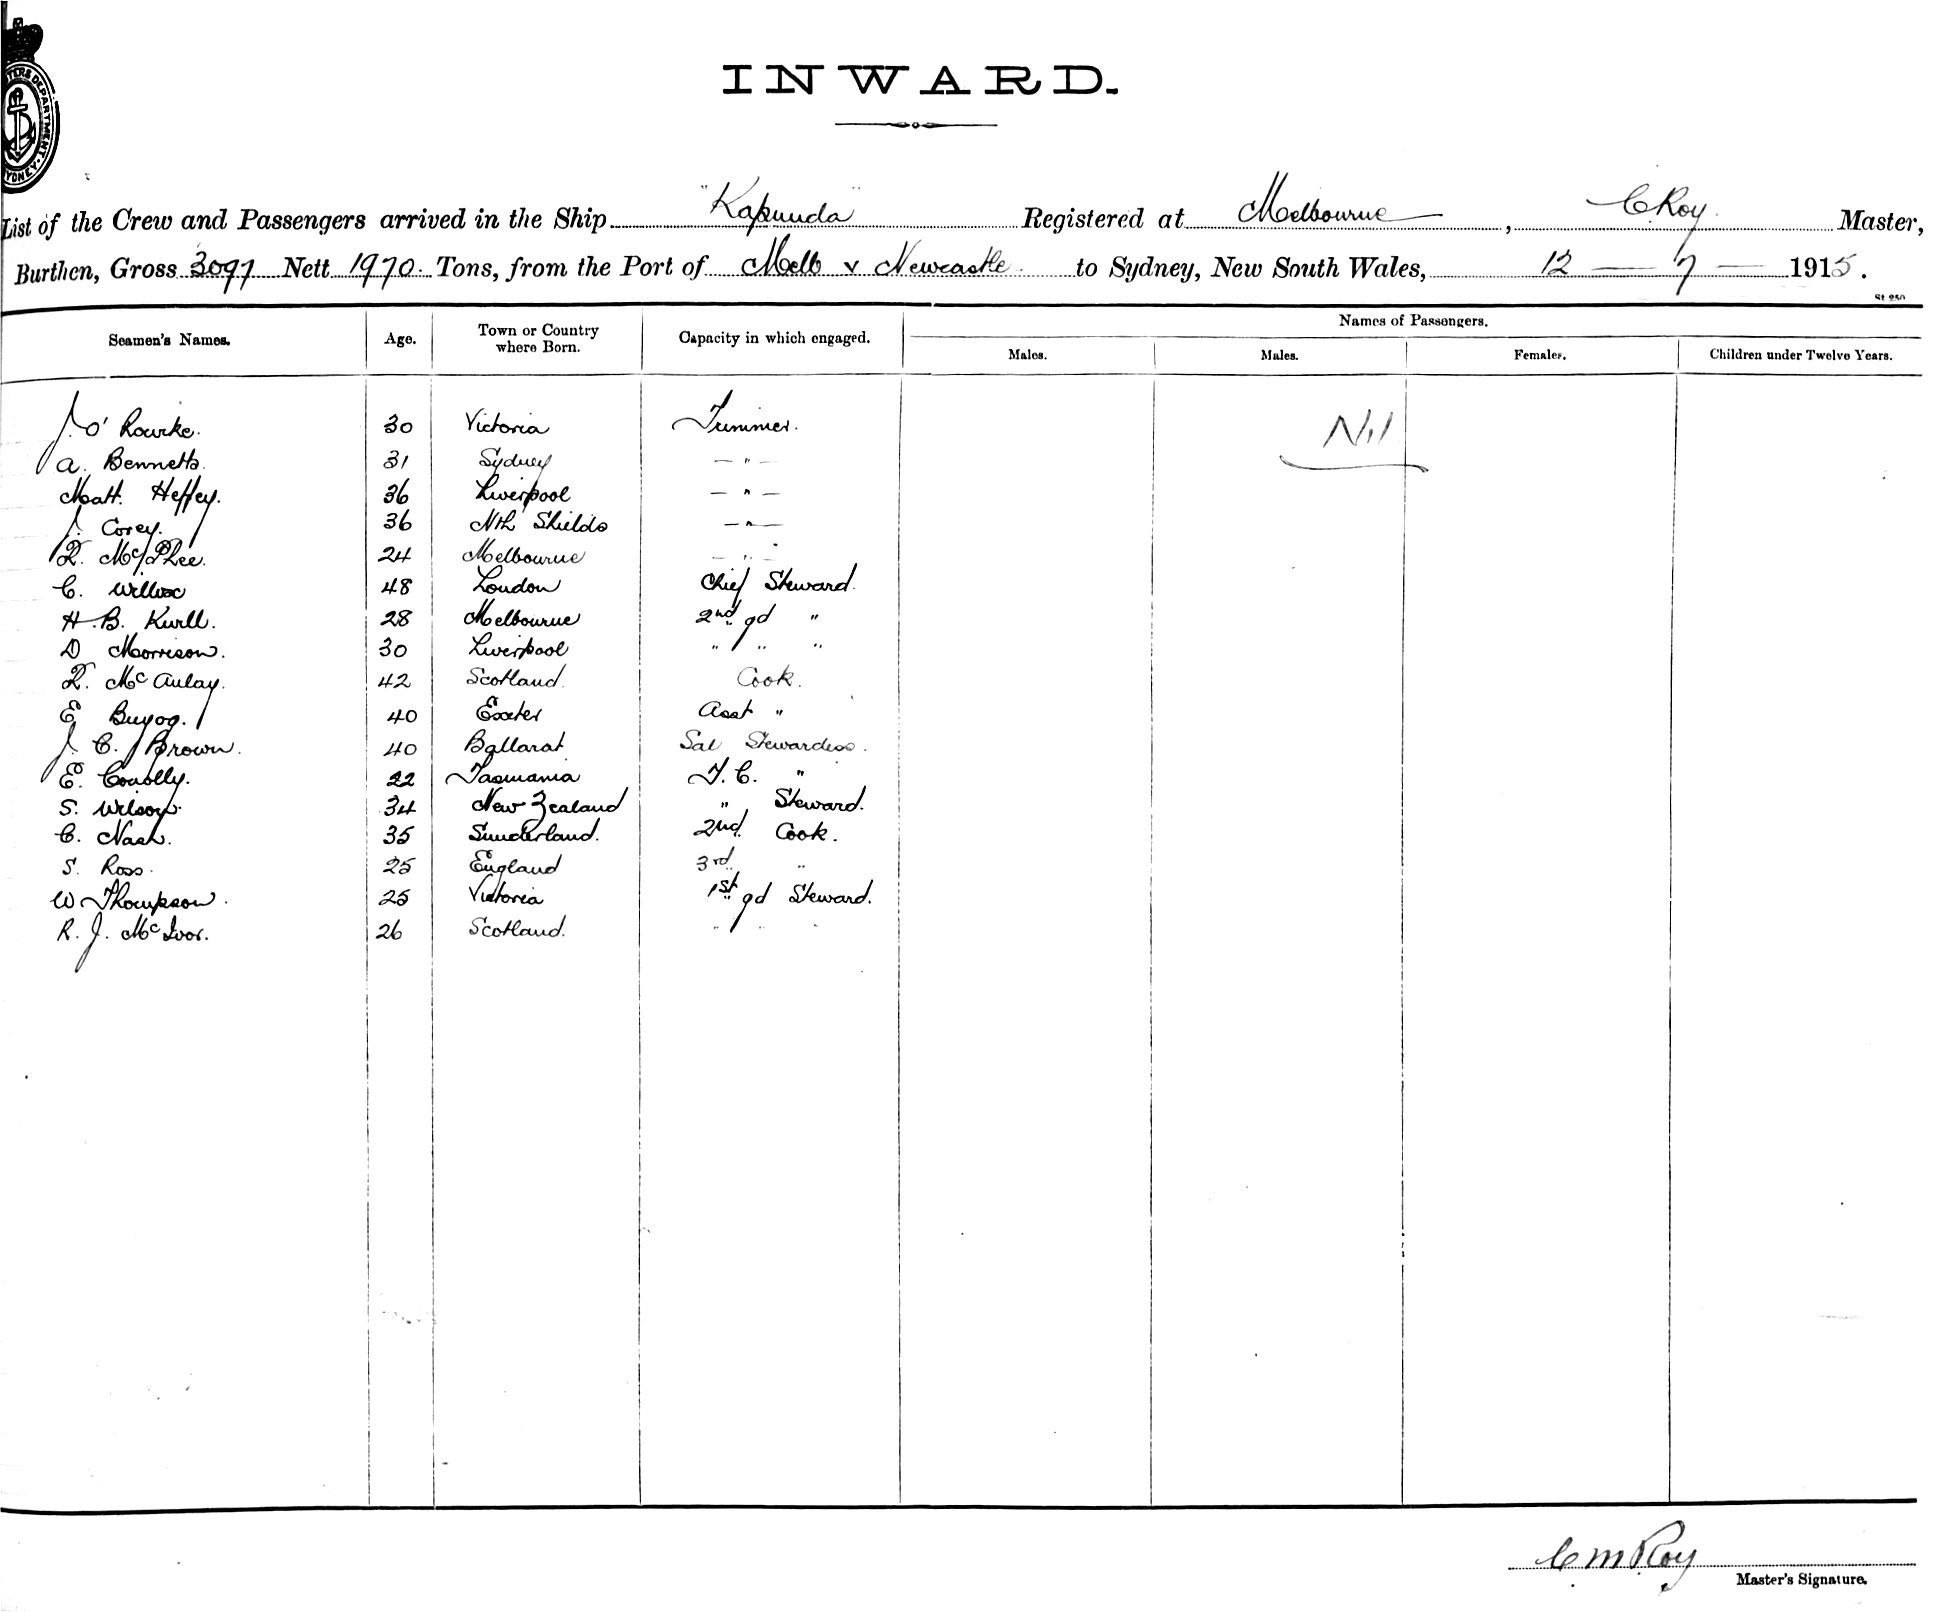 INWARD.
List of the Crew and Passengers arrived in the Ship "Kapunda" Registered at Melbourne, C. Roy. Master,
Burthen, Gross 3097 Nett 1970. Tons, from the Port of Melb & Newcastle to Sydney, New South Wales, 12 — 7 — 1915.
St 250
Seamen's Names. Age. Town or Country where Born. Capacity in which engaged. Names of Passengers.
Males. Males. Females. Children under Twelve Years.
J. O'Rourke. 30 Victoria Trimmer. Nil
A. Bennetts. 31 Sydney — " —
Matt. Heffey. 36 Liverpool — " —
J. Corey. 36 Nth Shields — " —
McPhee. 24 Melbourne — " —
C. 48 London Chief Steward.
H. B. Kurll. 28 Melbourne 2nd gd "
D Morrison. 30 Liverpool " " "
McAulay. 42 Scotland. Cook.
E Buyog. 40 Exeter Asst "
J. C. Brown. 40 Ballarat Sal Stewardess.
E. Conolly. 22 Tasmania T. C. "
S. Wilson. 34 New Zealand " Steward.
C. Nash. 35 Sunderland. 2nd. Cook.
S. Ross. 25 England 3rd "
W Thompson. 25 Victoria 1st gd Steward.
R. J. McIvor. 26 Scotland. " " "
C M Roy
Master's Signature.